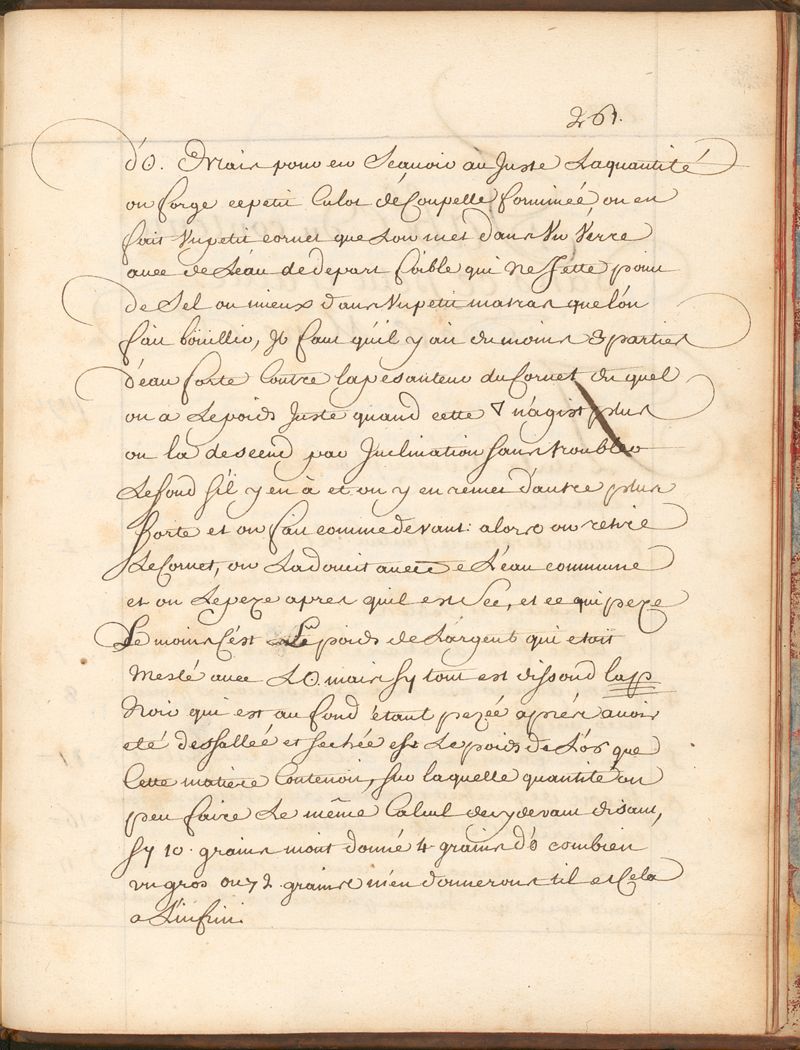 261.
d'☉. Mais pour en Scauoir au Juste La quantité
on forge ce petit Culot de Coupelle formineé on en
fait Vn petit cornet que L'on met dans Vn Verre
auec de L'eau de depart foible qui ne Jette point
de Sel ou mieux dans Vn petit matras que l'on
fait boüillir, Il faut qu'il y ait du moins 3 parties
d'eau forte Contre la pesanteur du Cornet du quel
on a Le poids Juste quand cette ▽ n'agist plus
on la descend par Inclination sans troubler
Le fond s'il y en à et on y en remet d'autre plus
forte et on fait comme devant: alors on retire
Le Cornet, on L'adoucit auec de L'eau commune
et on Le peze apres qu'il est Sec, et ce qui peze
Le moins C'est Le poids de L'argent qui etoit
Meslé auec L'☉. mais sy tout est dissoud la pp
Noir qui est au fond êtant pezeé aprés auoir
eté dessalleé et sechée est Le poids de L'or que
Cette matiere Contenoit, sur laquelle quantité on
peu faire Le même Calcul de cy devant disant,
sy 10. grains mont donné 4. grains d'☉ combien
vn gros ou 72. grains m'en donnerons til et Cela
a L'infini.